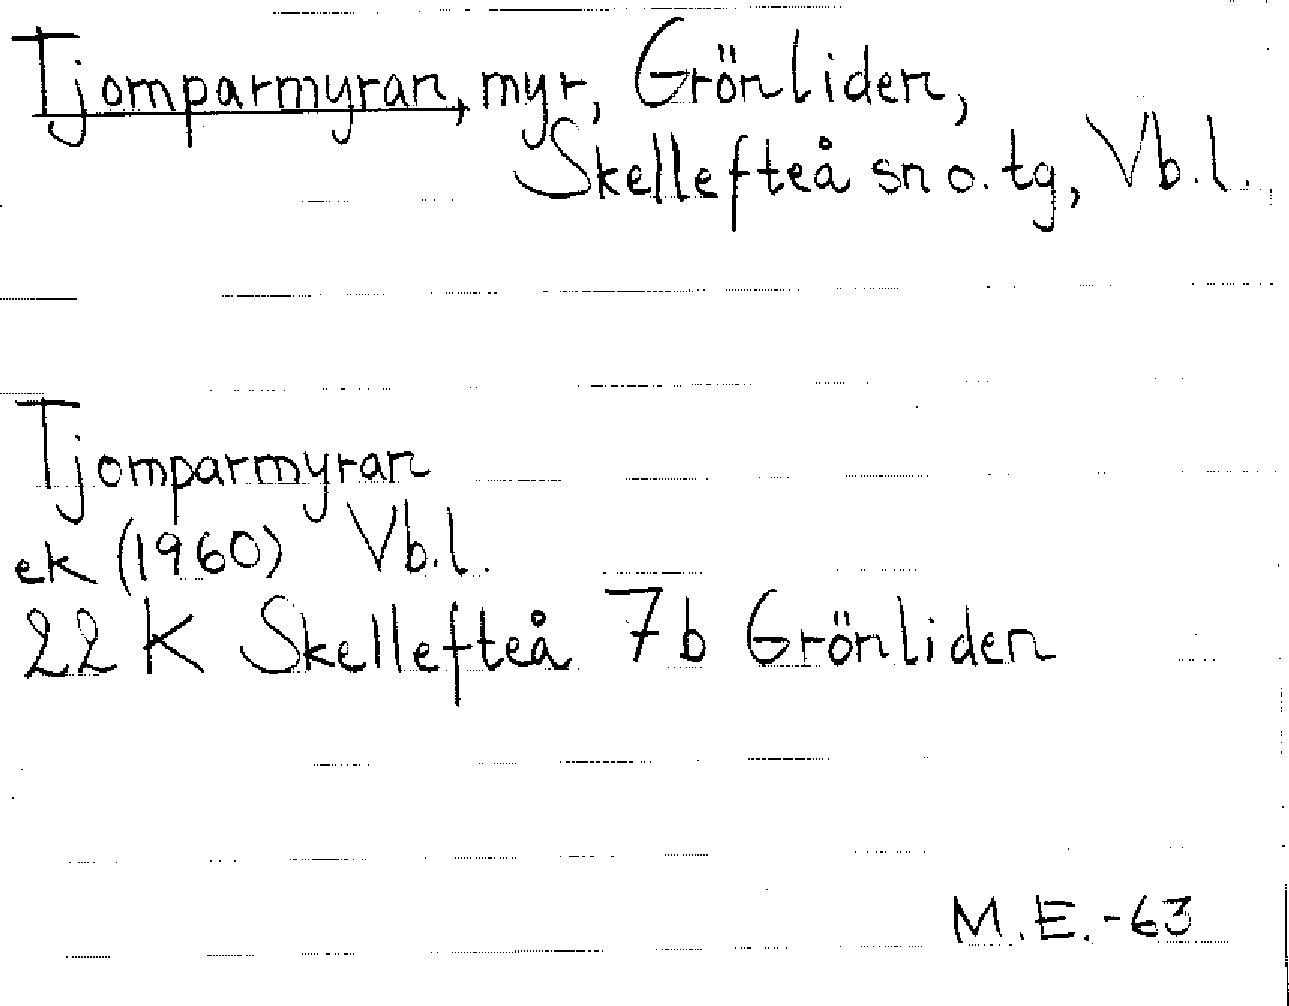 Tjomparmyran, myr, Grönliden,
Skellefteå sn o. tg, Vb.l.
Tjomparmyran
ek (1960) Vb.l.
22 K Skellefteå 7b Grönliden
M.E.-63